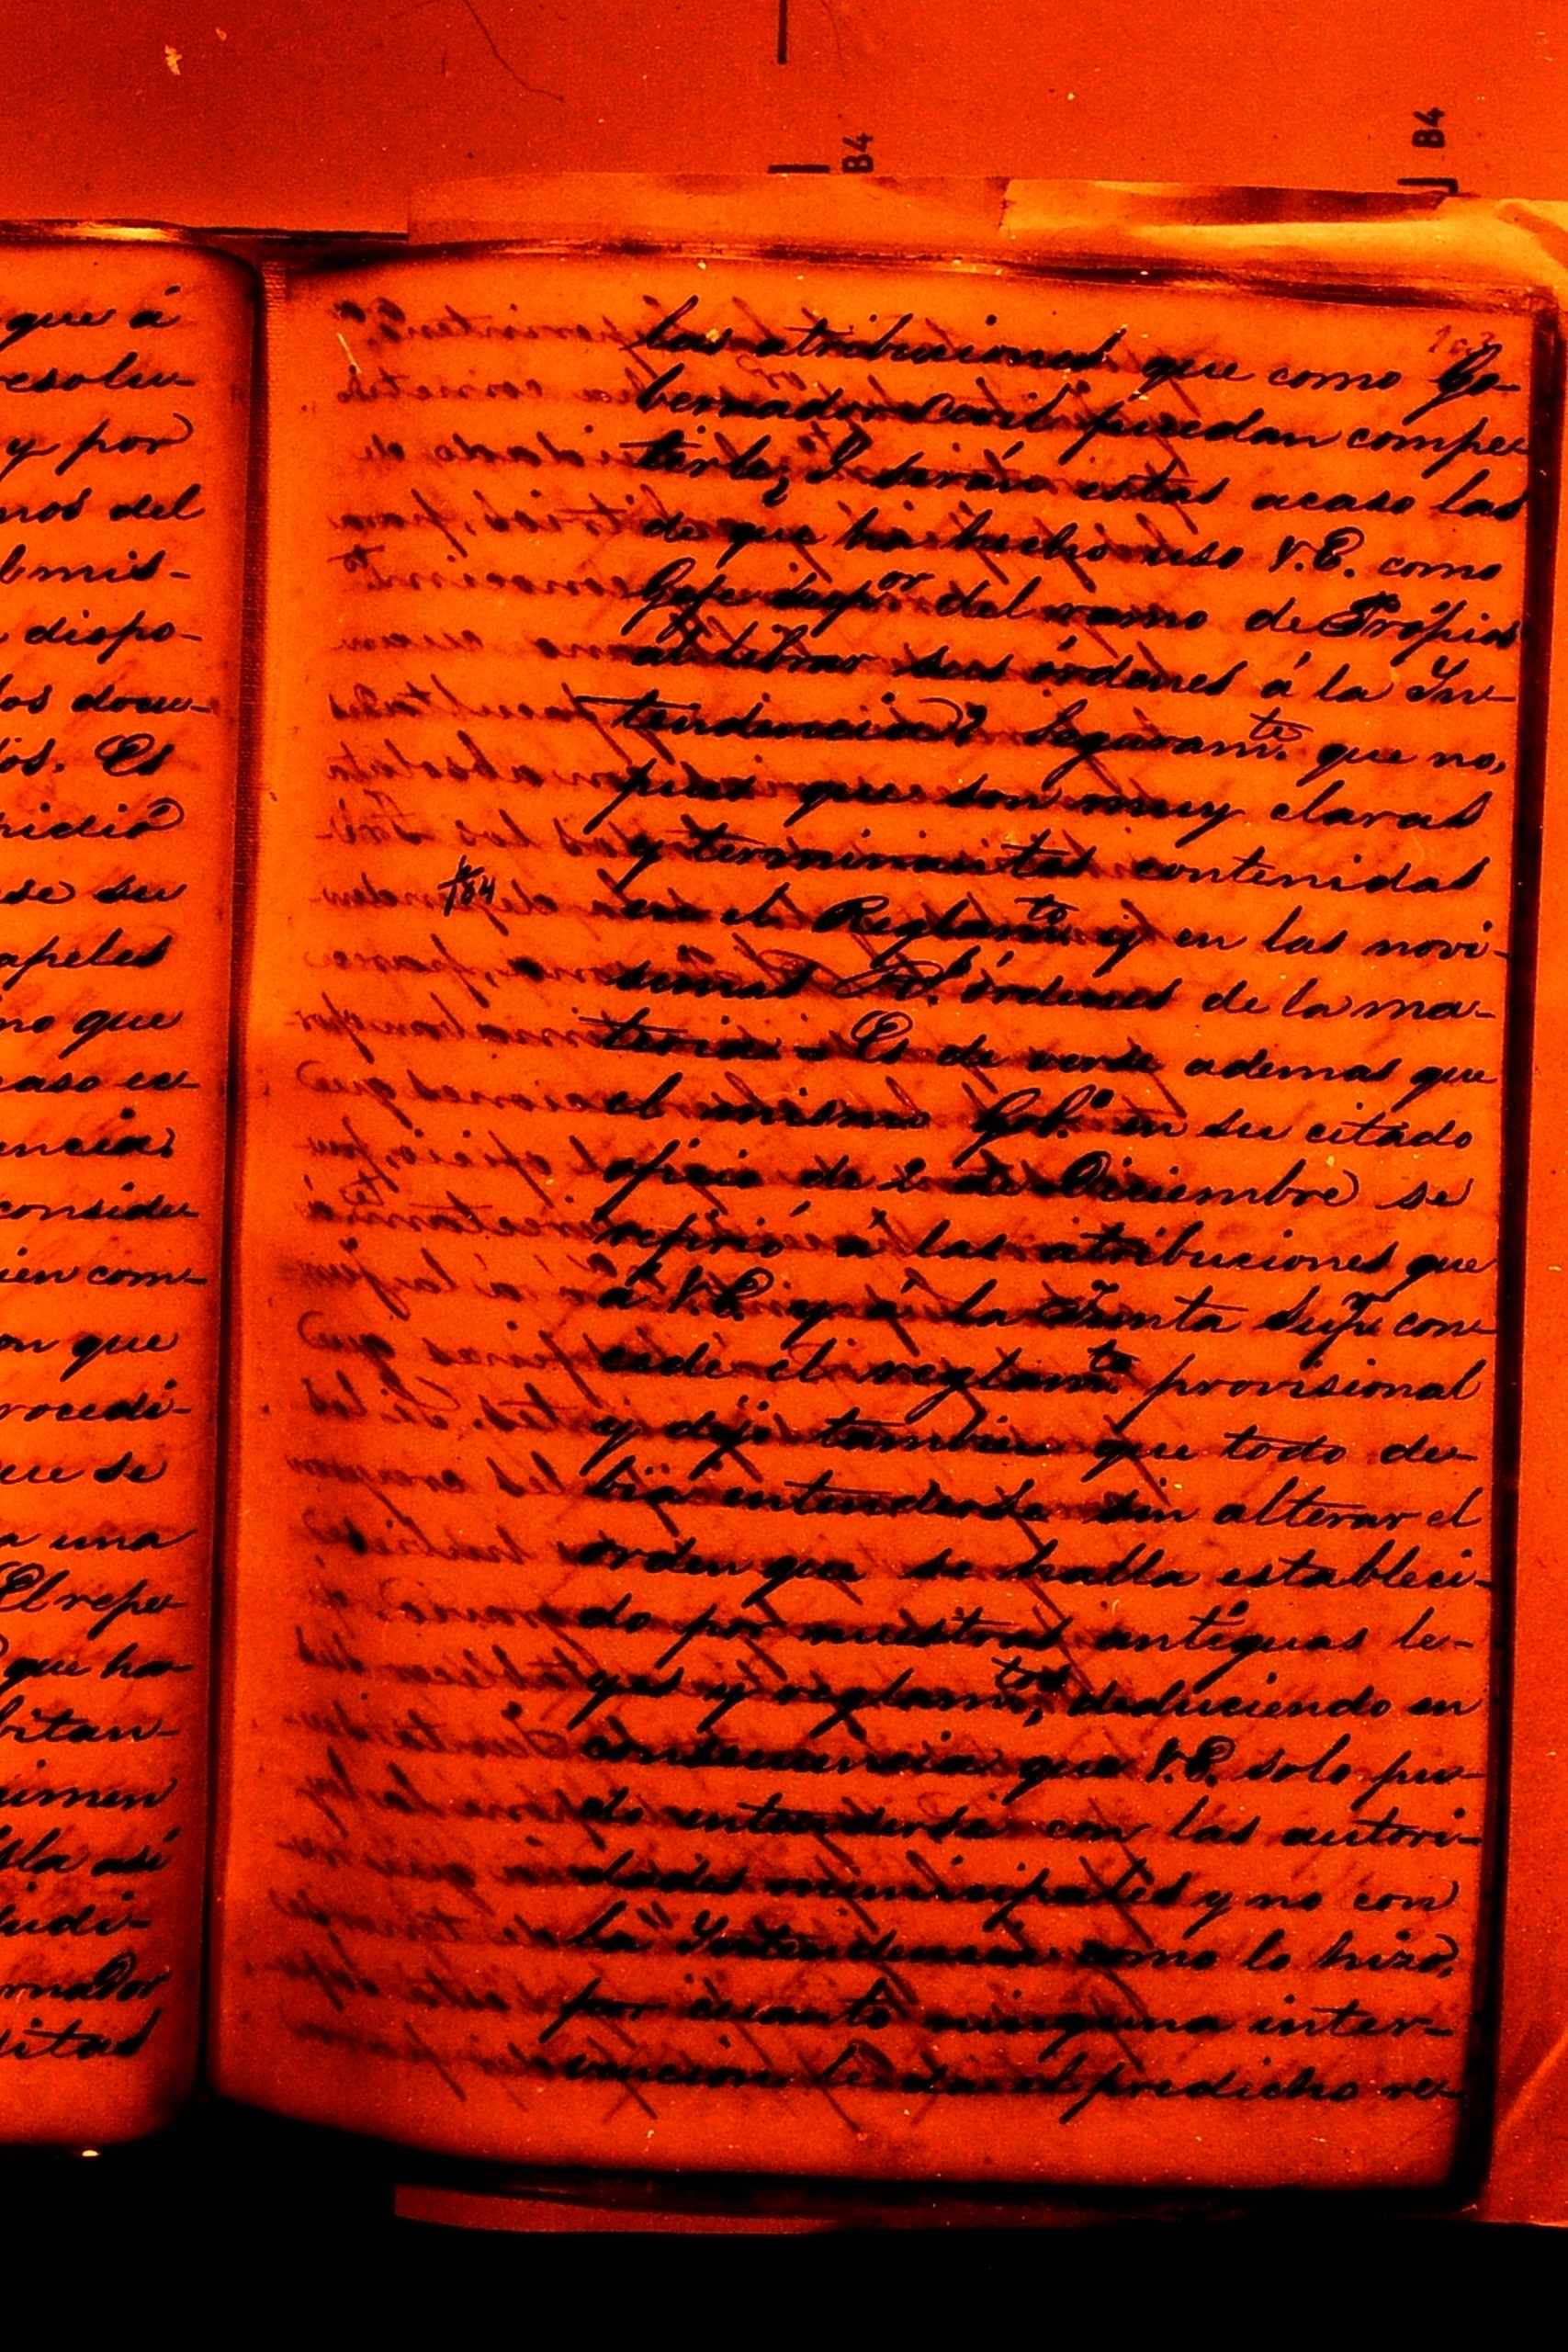 B4
B4
que á
resolu-
y por
nos del
dispo-
los docu-
Es
ese su
apeles
no que
caso en
encia
conside-
ien com-
on que
rocedi-
que se
a una
El repe-
que ha-
bitan-
gimen
Isla así
rnador
103
las atribuciones que como Go-
bernador Civil puedan compe-
terle; Y serán estas acaso las
de que ha hecho uso V.E. como
Gefe Sup.or del ramo de Própios
al librar sus órdenes á la In-
tendencia? Seguram.te que no,
pues que son muy claras
y terminantes contenidas
184
en el Reglam.to y en las noví-
simas R.s órdenes de la ma-
teria. = Es de verse ademas que
el mismo Gob.o en su citado
oficio de 2 de Diciembre se
refirió á las atribuciones que
á V.E. y á la Junta Sup.r con-
cede el reglam.to provisional
y dijo tambien que todo de-
bia entenderse sin alterar el
orden que se halla estableci-
do por nuestras antiguas le-
yes y reglam.tos, deduciendo en
consecuencia que V.E. solo pu-
do entenderse con las autori-
dades municipales y no con
la Yntendencia como lo hizo,
por cuanto ninguna inter-
vencion le da el predicho re-